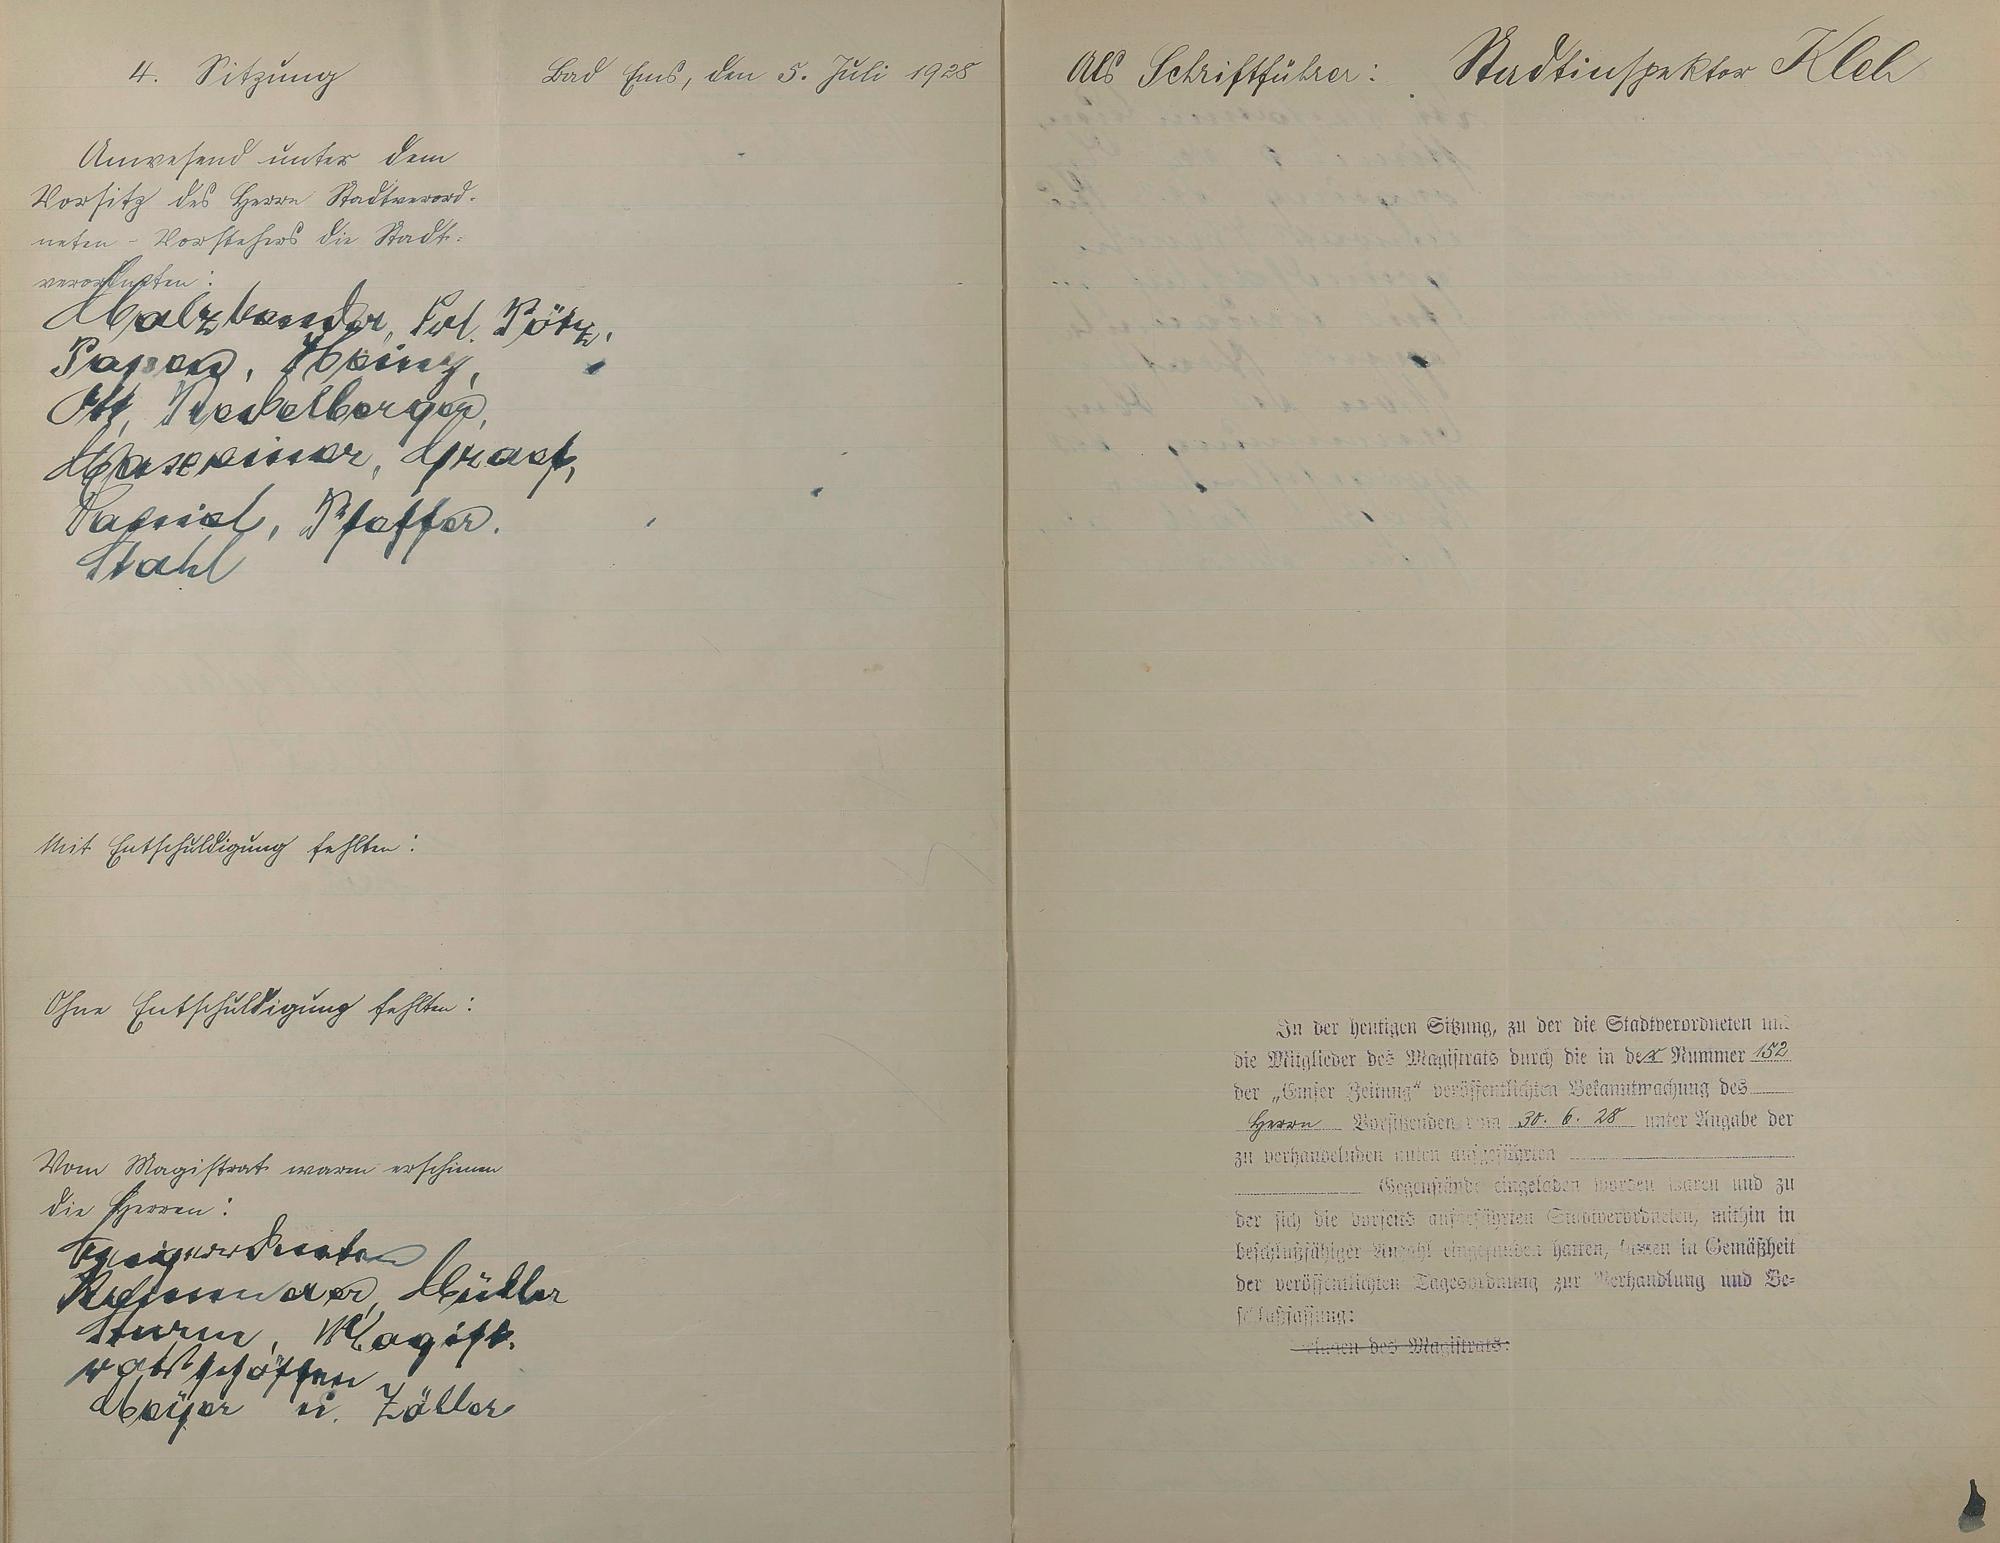 4. Sitzung
Bad Ems, den 5. Juli 1928
Anwesend unter dem
Vorsitz des Herrn Stadtverord-
neten-Vorstehers die Stadt-
verordneten:
Malzbender, Pötz,
Heinz,
Ott, Heidelberger,
Graef,
Daniel, Pfeffer.
Stahl
Mit Entschuldigung fehlten:
Ohne Entschuldigung fehlten:
Vom Magistrat waren erschienen
die Herren:
Beigeordneter
Müller
Sturm, Magist-
ratsschöffen
Meyer u. Zöller
Als Schriftführer: Stadtinspektor Kleh
In der heutigen Sitzung, zu der die Stadtverordneten und
die Mitglieder des Magistrats durch die in der Nummer 152
der „Emser Zeitung“ veröffentlichten Bekanntmachung des
Herrn Vorsitzenden vom 30. 6. 28 unter Angabe der
zu verhandelnden unten aufgeführten
Gegenstände eingeladen worden waren und zu
der sich die vorseits aufgeführten Stadtverordneten, mithin in
beschlußfähiger Anzahl eingefunden hatten, kamen in Gemäßheit
der veröffentlichten Tagesordnung zur Verhandlung und Be-
schlußfassung:
des Magistrats: